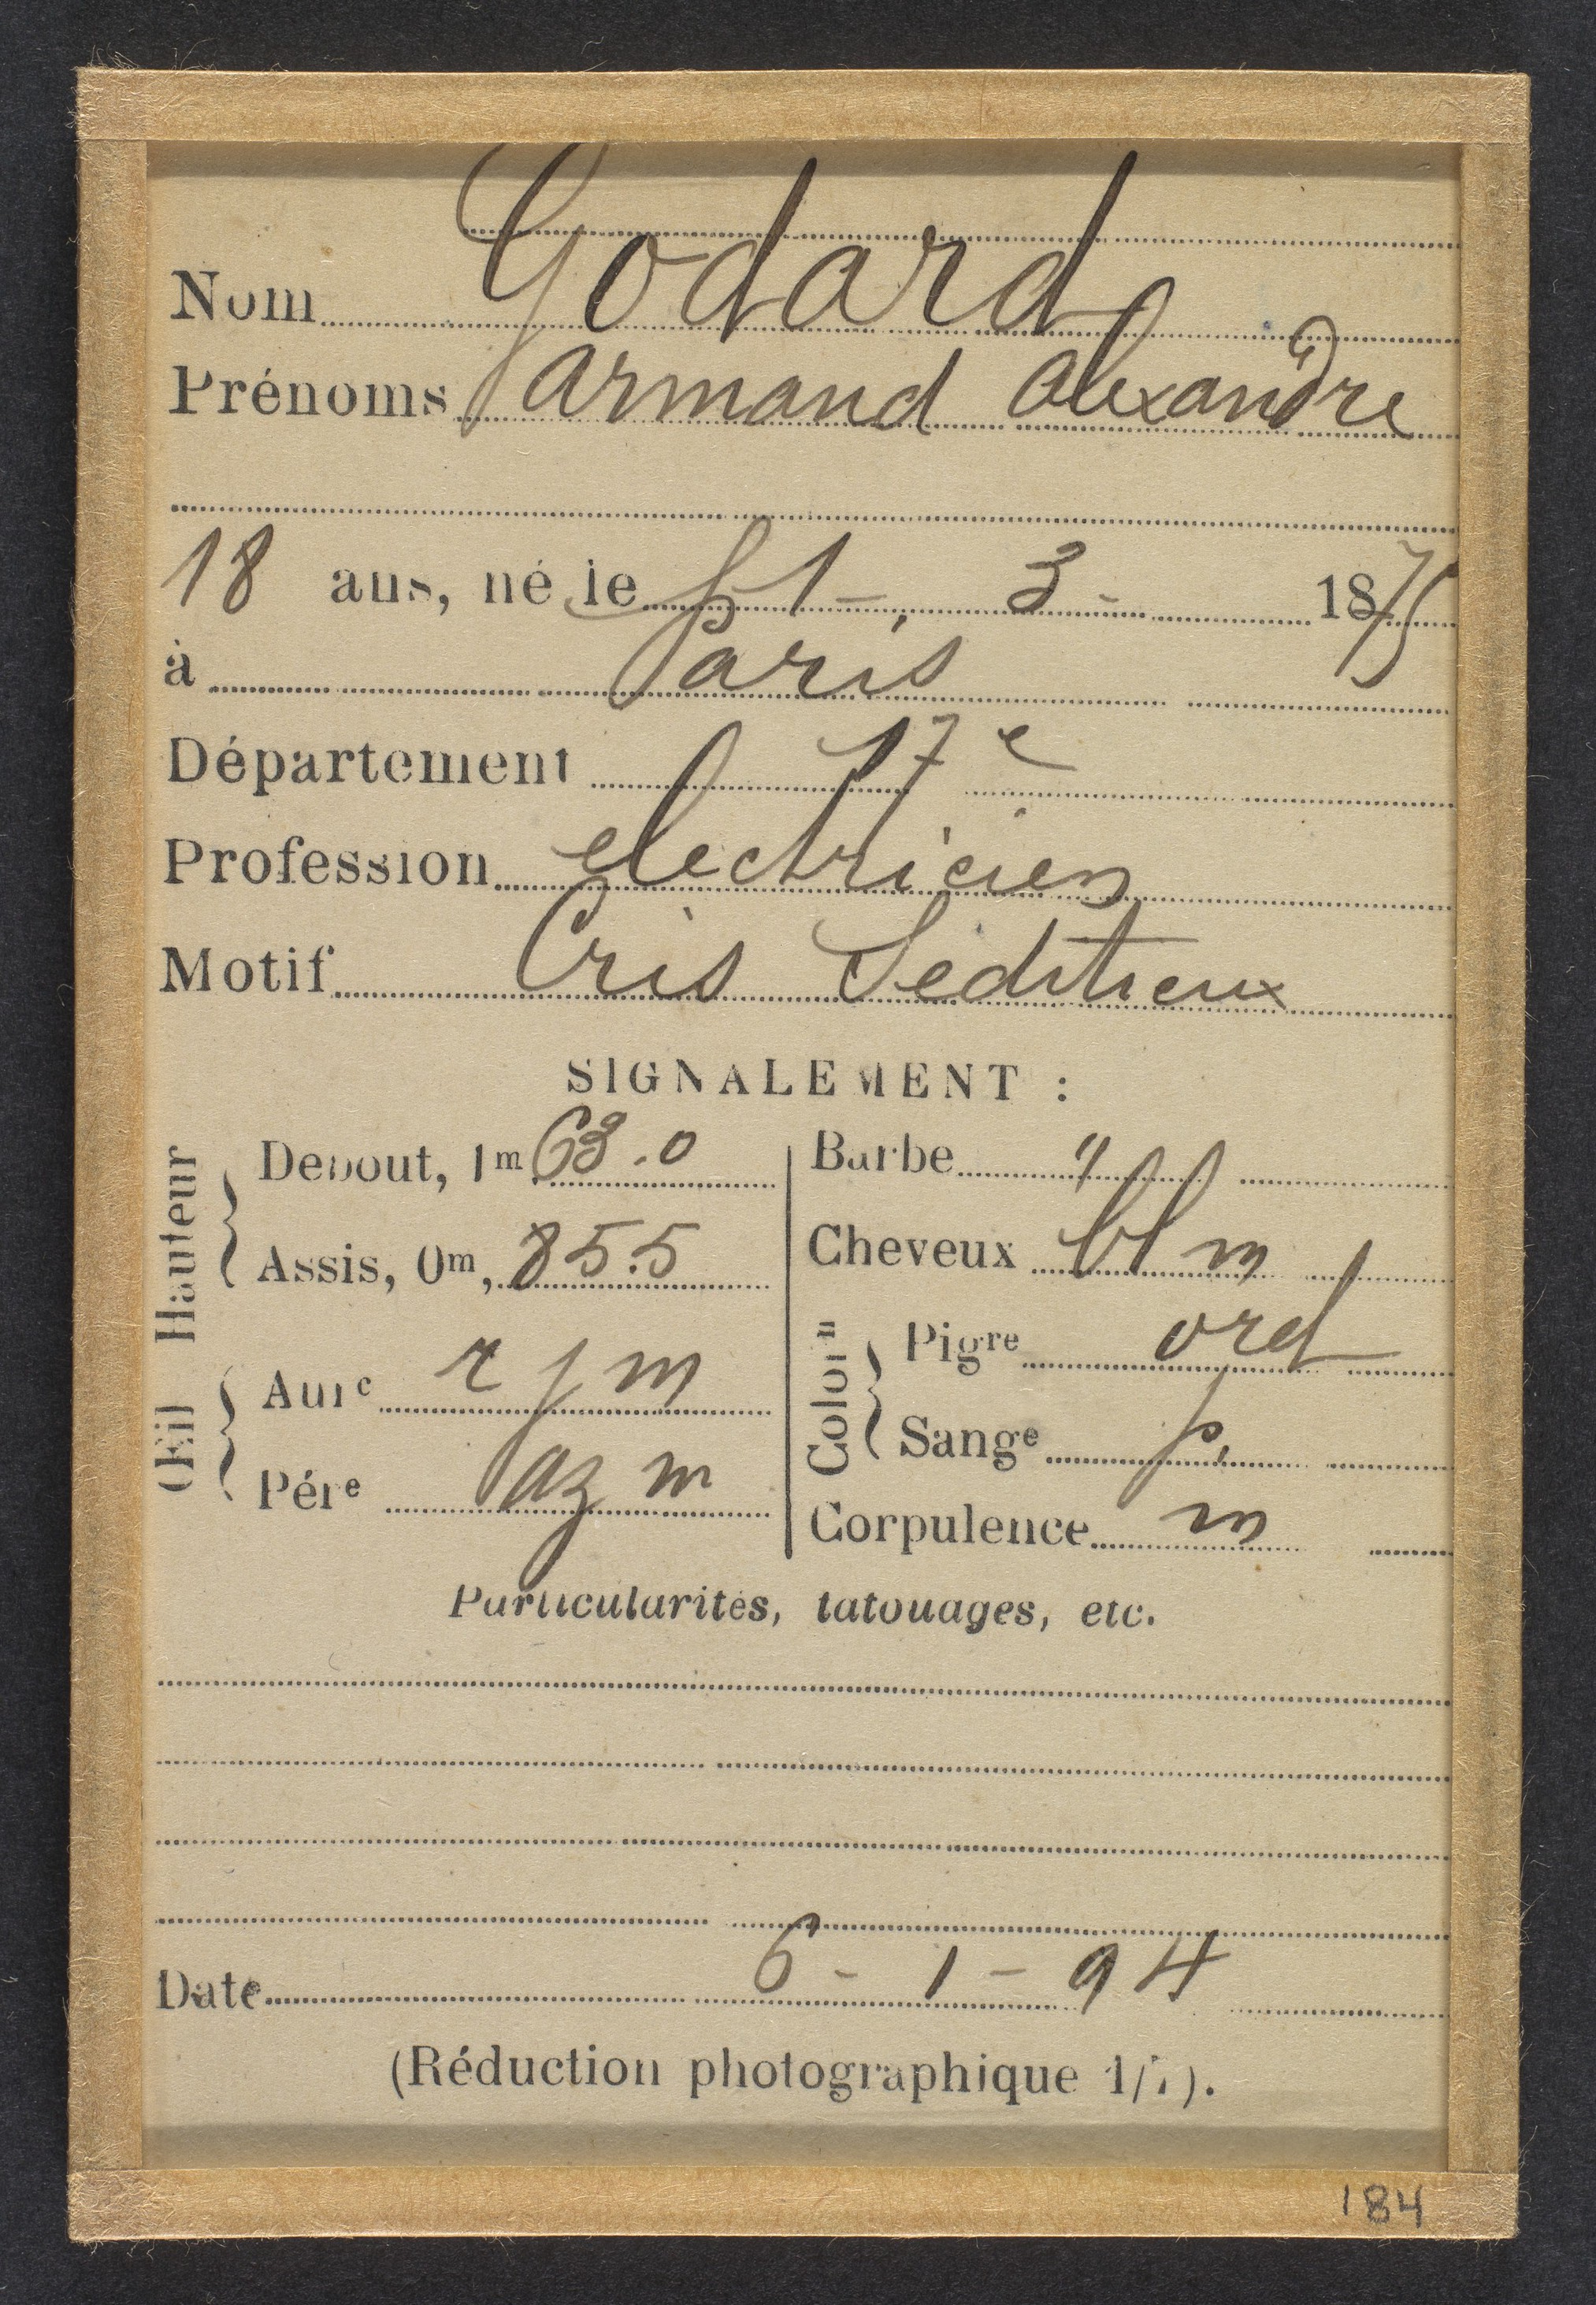 Nom Godard
Prénoms Armand Alexandre
18 ans, né le 1 - 3 - 1875
à Paris
Département 17e
Profession electricien
Motif Cris Seditieux
SIGNALEMENT :
Hauteur
Debout, 1m 63.0
Assis, 0m, 85.5
Œil
Aure r j m
Pére az m
Barbe "
Cheveux bl m
Coloron
Pigre ord
Sange p.
Corpulence m
Particularités, tatouages, etc.
Date 6 - 1 - 94
(Réduction photographique 1/7).
184